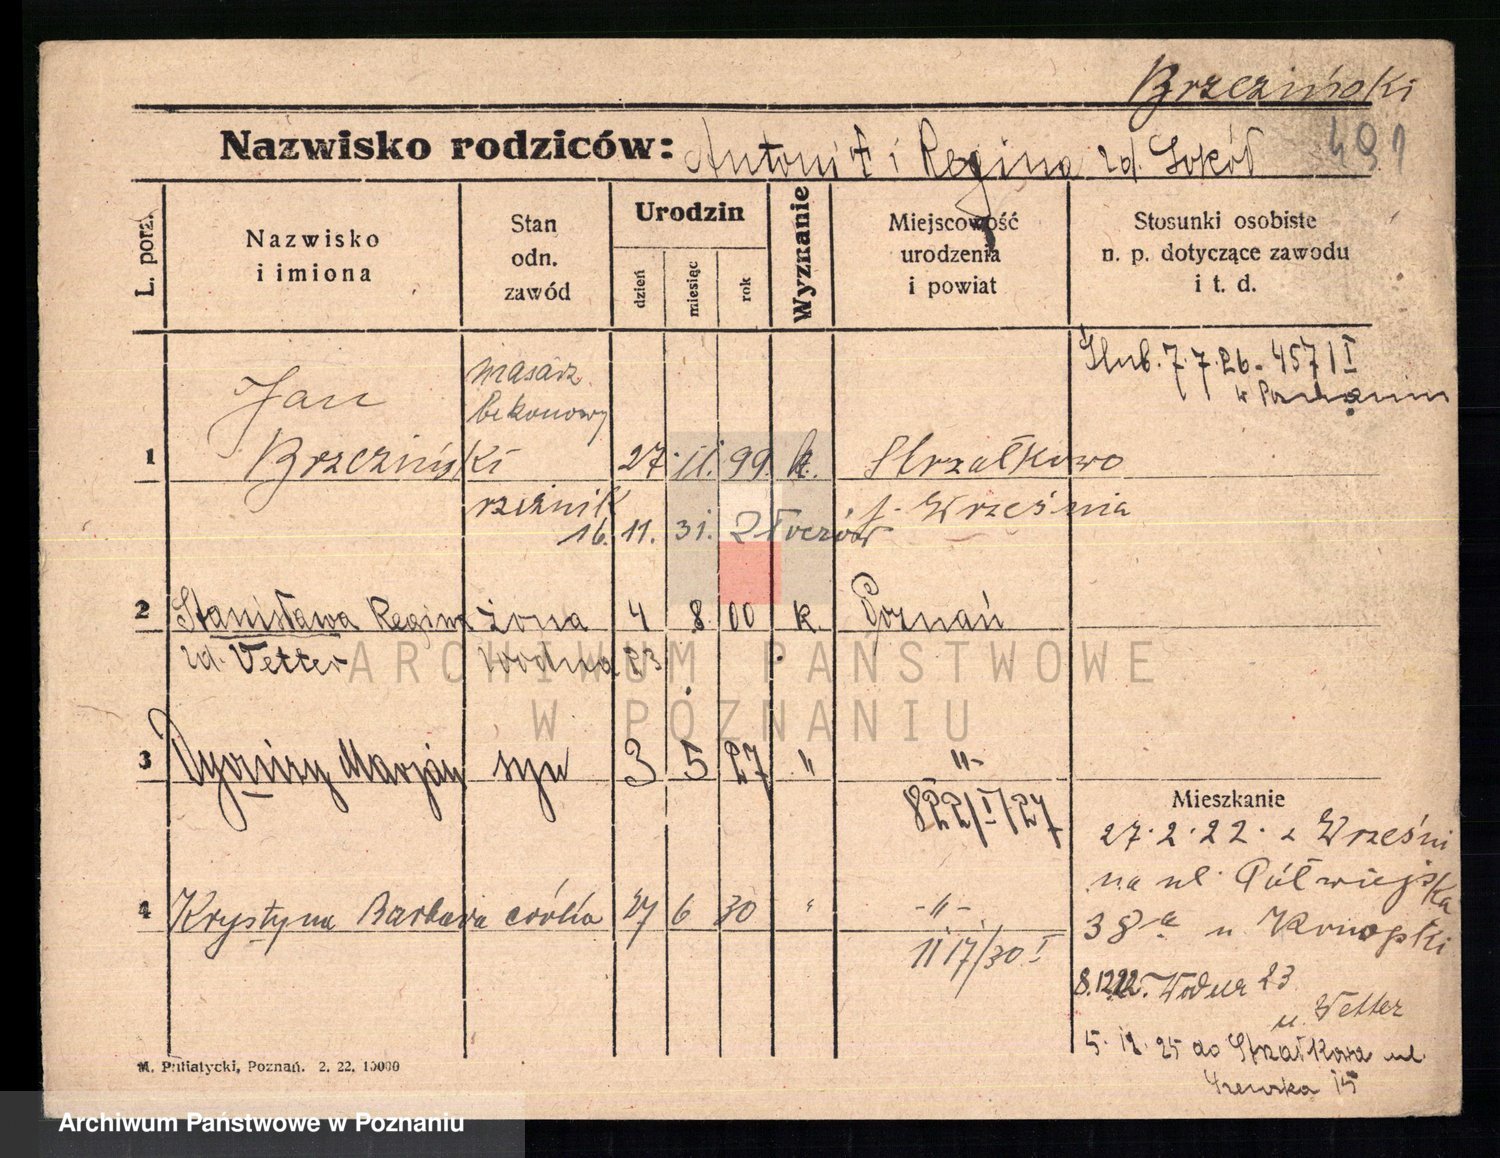 Brzeziński
Nazwisko rodziców: Antoni i Regina zd. Sokół
L. porz.
Nazwisko
i imiona
Stan
odn.
zawód
Urodzin
dzień
miesiąc
rok
Wyznanie
Miejscowość
urodzenia
i powiat
Stosunki osobiste
n. p. dotyczące zawodu
i t. d.
Ślub. 7.7.26. 457/I
w Poznaniu
masarz
bekonowy
1 Jan Brzeziński 27. 11. 99. k. Strzałkowo
rzeźnik
Września
16. 11. 31.
2 Stanisława Regina żona 4 8 00 k. Poznań
zd. Vetter Wodna 23
3 Marjan syn 3 5 27 " -"-
822/I/27
4 Krystyna Barbara córka 27 6 30 " -"-
1117/30 I
Mieszkanie
27.2.22. z Wrześni
na ul. Półwiejska
38a u
8.12.22. Wodna 23
u. Vetter
5. 12. 25 do Strzałkowa ul.
15
M. Putiatycki, Poznań. 2. 22. 10000
ARCHIWUM PAŃSTWOWE
W POZNANIU
Archiwum Państwowe w Poznaniu